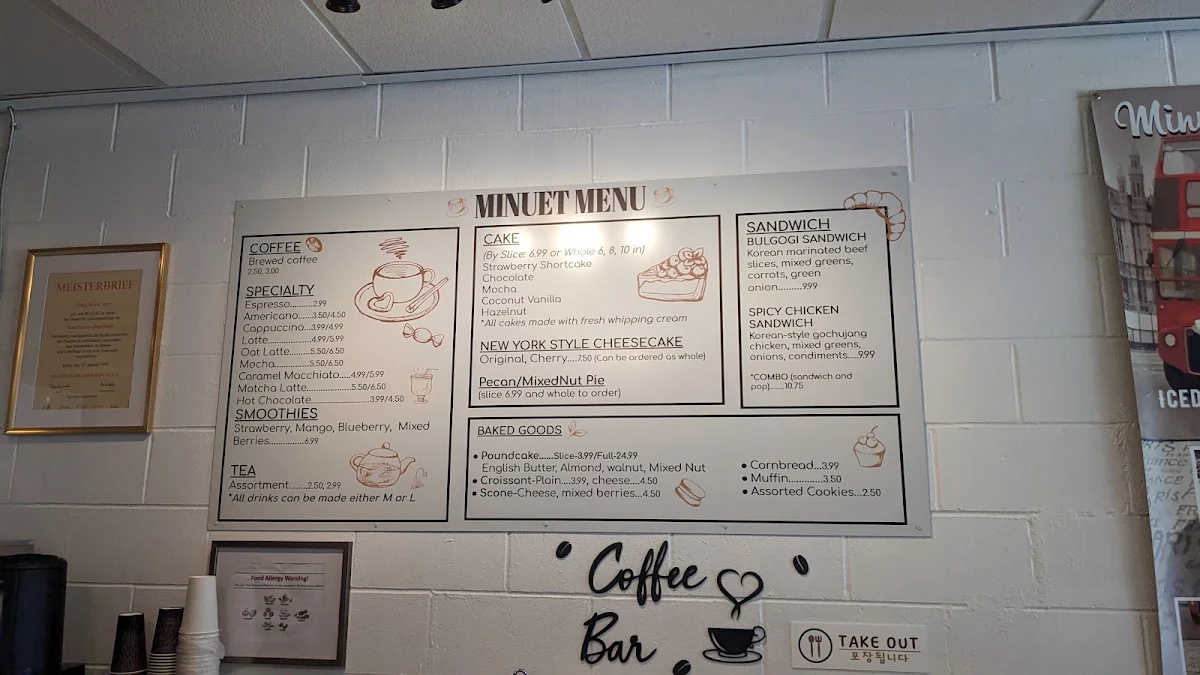 MINUET MENU
COFFEE
Brewed coffee
2.50, 3.00
SPECIALTY
Espresso..........2.99
Americano.......3.50/4.50
Cappuccino...3.99/4.99
Latte..................4.99/5.99
Oat Latte........5.50/6.50
Mocha..............5.50/6.50
Caramel Macchiato....4.99/5.99
Matcha Latte................5.50/6.50
Hot Chocolate....................3.99/4.50
SMOOTHIES
Strawberry, Mango, Blueberry, Mixed
Berries.............6.99
TEA
Assortment.......2.50, 2.99
*All drinks can be made either M or L
CAKE
(By Slice: 6.99 or Whole 6, 8, 10 in)
Strawberry Shortcake
Chocolate
Mocha
Coconut Vanilla
Hazelnut
*All cakes made with fresh whipping cream
NEW YORK STYLE CHEESECAKE
Original, Cherry....7.50 (Can be ordered as whole)
Pecan/MixedNut Pie
(slice 6.99 and whole to order)
SANDWICH
BULGOGI SANDWICH
Korean marinated beef
slices, mixed greens,
carrots, green
onion.........9.99
SPICY CHICKEN
SANDWICH
Korean-style gochujang
chicken, mixed greens,
onions, condiments....9.99
*COMBO (sandwich and
pop)......10.75
BAKED GOODS
• Poundcake......Slice-3.99/Full-24.99
English Butter, Almond, walnut, Mixed Nut
• Croissant-Plain....3.99, cheese....4.50
• Scone-Cheese, mixed berries...4.50
• Cornbread...3.99
• Muffin.............3.50
• Assorted Cookies...2.50
MEISTERBRIEF
Food Allergy Warning!
Coffee
Bar
TAKE OUT
포장됩니다
ICED